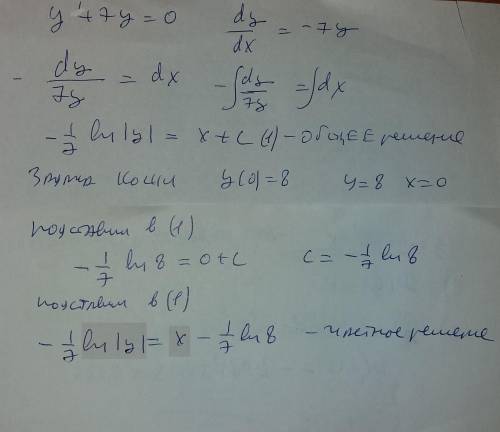 y' + 7y = 0    dy/dx = -7y
- dy/7y = dx    -∫dy/7y = ∫dx
-1/7 ln|y| = x + C (1) - общее решение
Задача Коши    y(0)=8    y=8  x=0
подставим в (1)
-1/7 ln 8 = 0 + C    C = -1/7 ln 8
подставим в (1)
-1/7 ln|y| = x - 1/7 ln 8 - частное решение